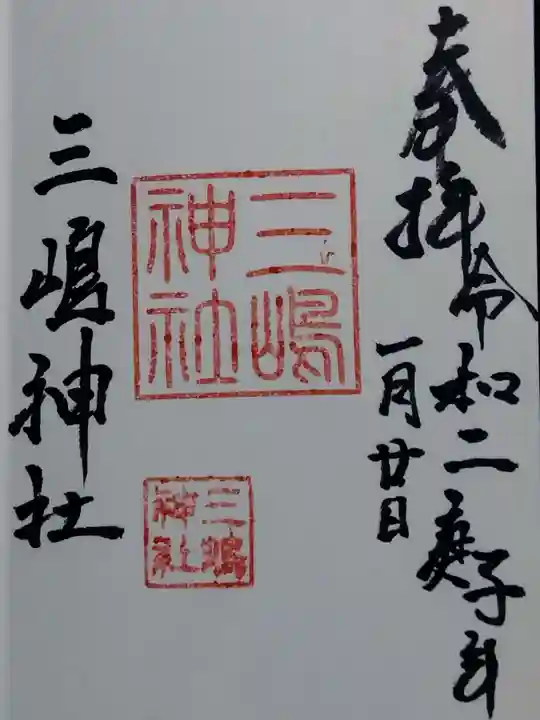 奉拝
令和二庚子年
一月廿日
三嶋
神社
三嶋
神社
三嶋神社